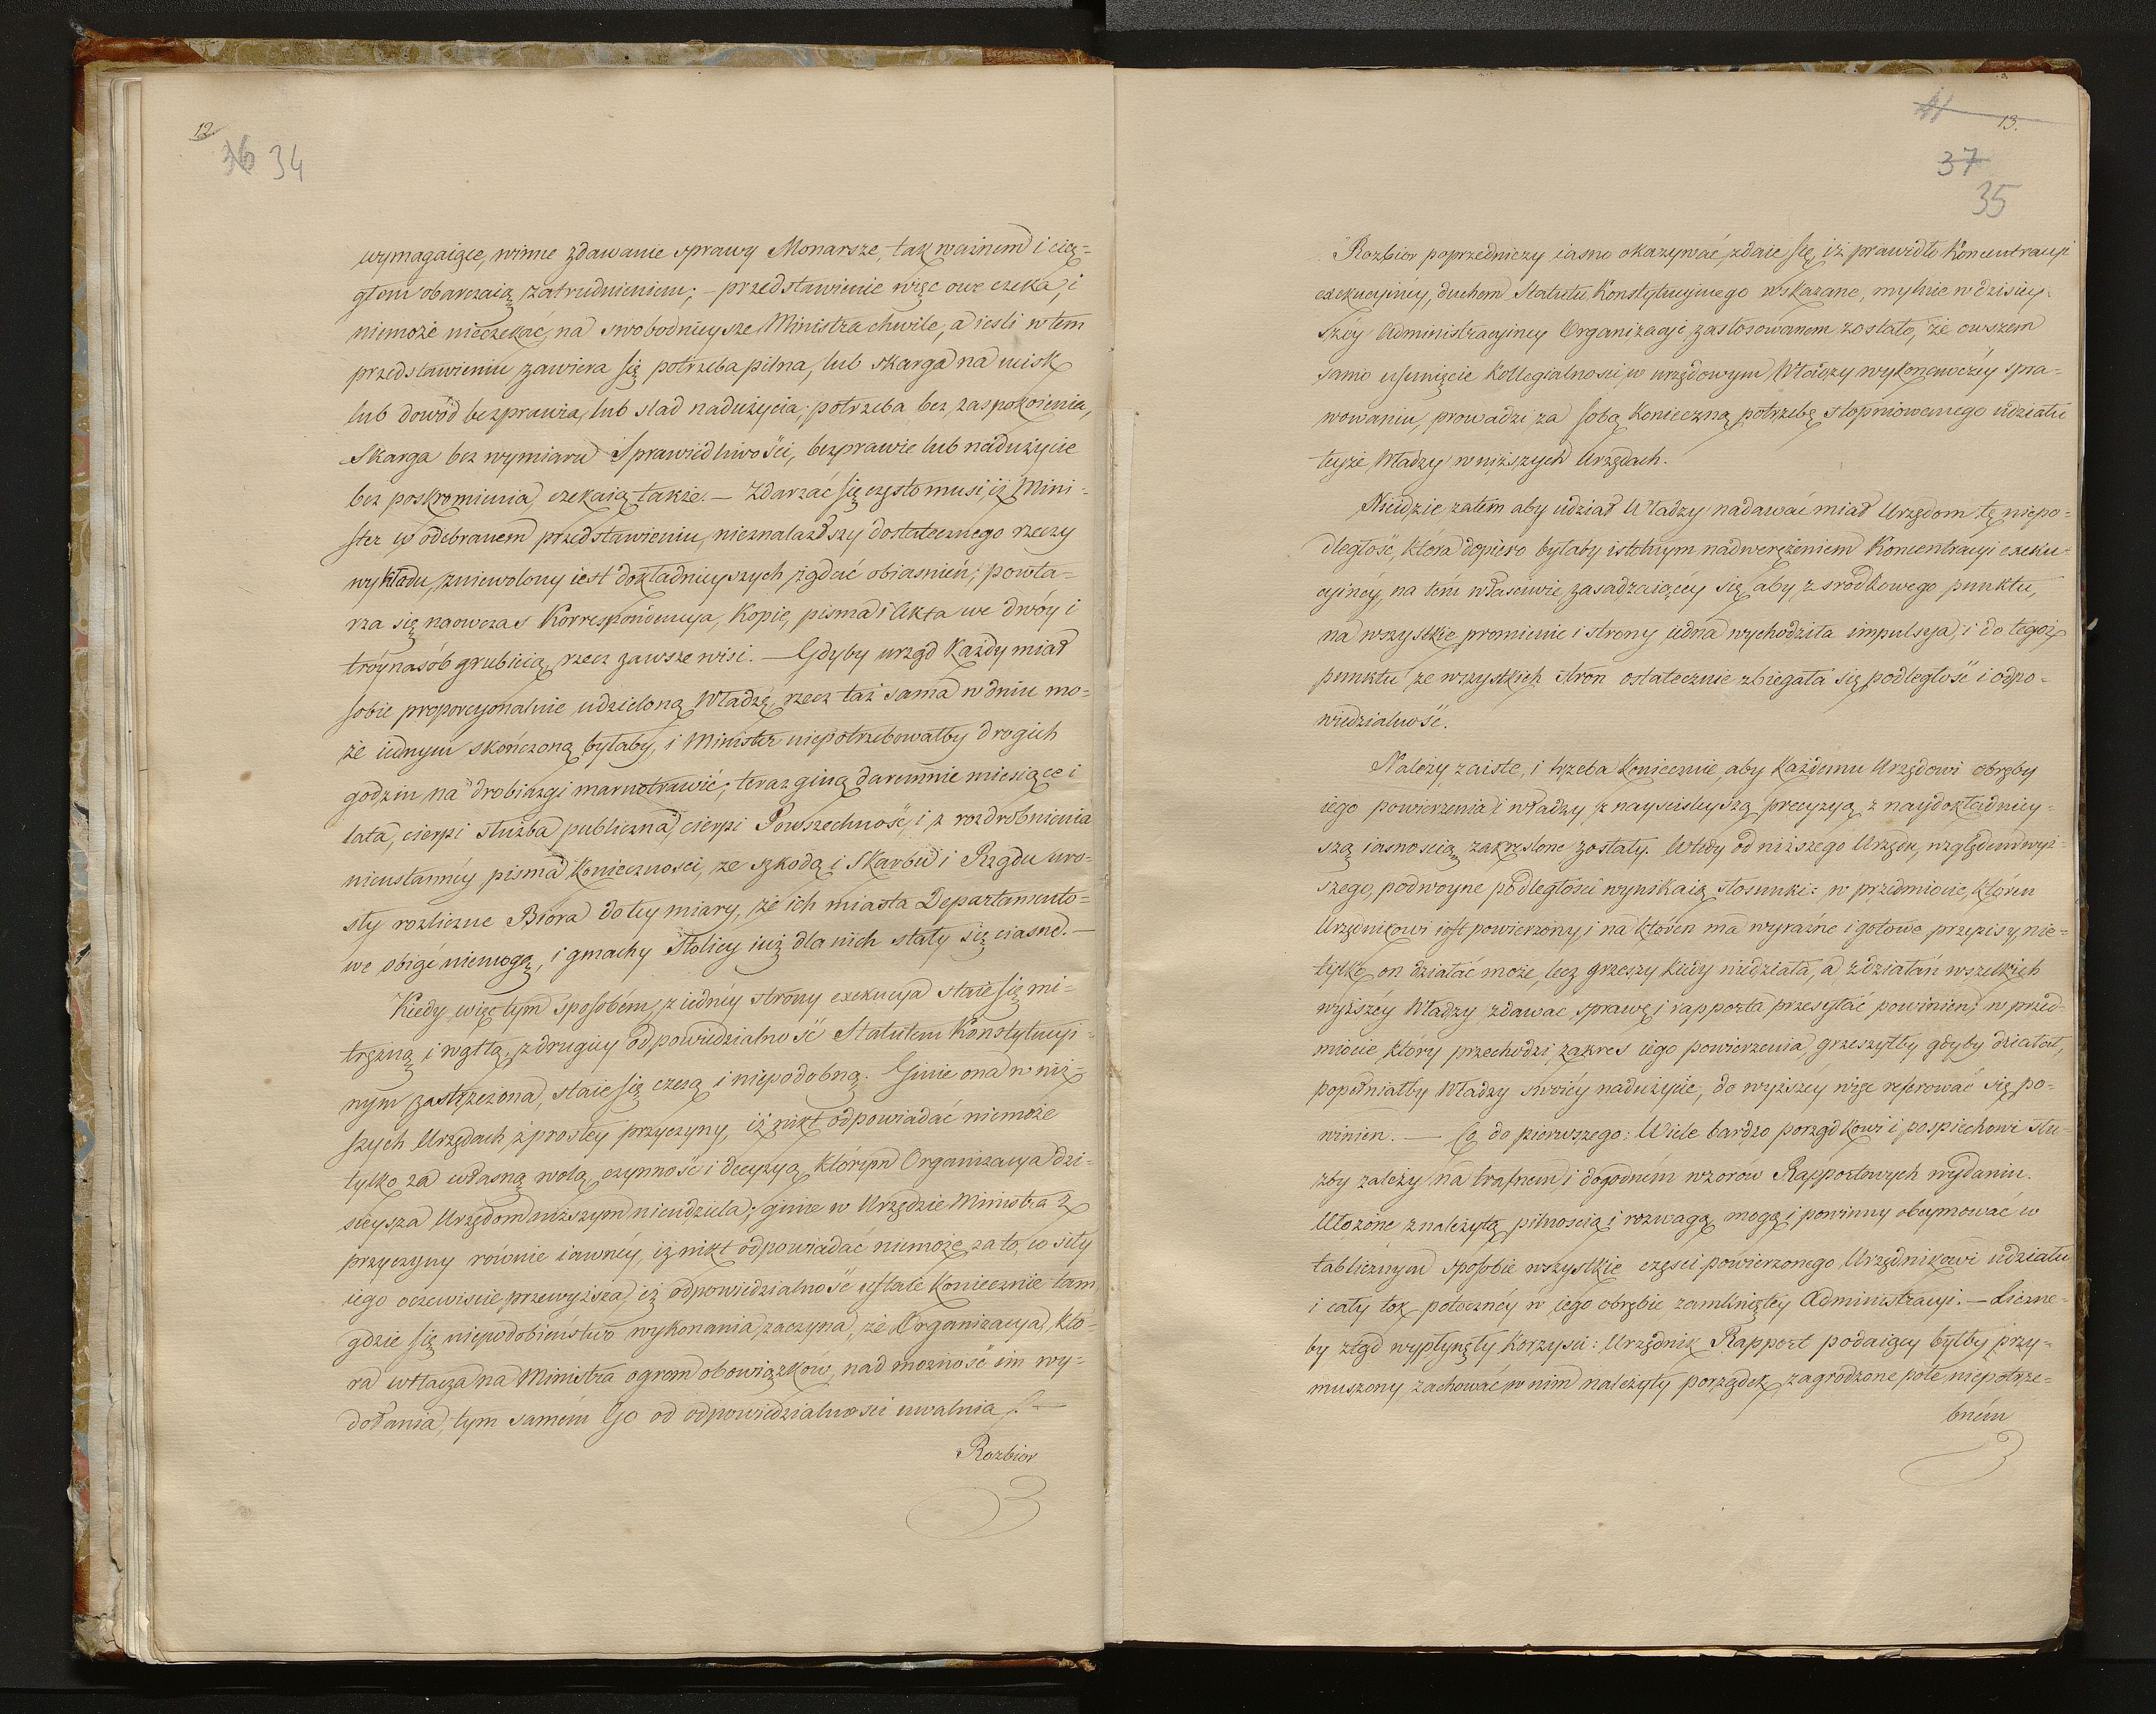 12
36 34
wymagaiące, winne zdawanie sprawy Monarsze, tak ważnem i cią-
głem obarczaią zatrudnieniem; - przedstawienie więc owe czeka, i
niemoże nieczekać, na swobodnieysze Ministra chwile, a iesli w tem
przedstawieniu zawiera się potrzeba pilna, lub skarga na ucisk
lub dowód bezprawia, lub slad nadużycia; potrzeba bez zaspokoienia,
Skarga bez wymiaru Sprawiedliwości, bezprawie lub nadużycie
bez poskromienia, czekaią także. — Zdarzać się często musi, iż Mini-
ster w odebranem przedstawieniu, nieznalazłszy dostatecznego rzeczy
wykładu, zniewolony iest dokładnieyszych żądać obiasnień; powta-
rza się naowczas Korrespondencya, Kopie, pisma i Akta we dwóy i
tróynasób grubieią, rzecz zawsze wisi. — Gdyby urząd każdy miał
sobie proporcyonalnie udzieloną Władzę, rzecz taż sama w dniu mo-
że iednym skończoną byłaby, i Minister niepotrzebowałby drogich
godzin na drobiazgi marnotrawić; teraz giną daremnie miesiące i
lata, cierpi służba publiczna, cierpi Powszechność, i z rozdrobnienia
nieustannéy pisma konieczności, ze szkodą i Skarbu i Rządu uro-
sły rozliczne Biora do tey miary, że ich miasta Departamento-
we obiąć niemogą, i gmachy Stolicy iuż dla nich stały się ciasne. —
Kiedy więc tym sposobém, z iednéy strony exekucya staie się mi-
trężną i wątłą, z drugiey odpowiedzialność Statutem Konstytucyi-
nym zastrzeżona, staie się czczą i niepodobną. Ginie ona w niż-
szych Urzędach z prostey przyczyny, iż nikt odpowiadać niemoże
tylko za własną wolą, czynność i decyzyą, którym Organizacya dzi-
sieysza Urzędom niższym nieudziela; ginie w Urzędzie Ministra z
przyczyny równie iawnéy, iż nikt odpowiadać niemoże za to, co siły
iego oczewiscie przewyższa, iż odpowiedzialność ustaie koniecznie tam
gdzie się niepodobieństwo wykonania zaczyna, że Organizacya, któ-
ra wtłacza na Ministra ogrom obowiązków, nad możność im wy-
dołania, tym samém Go od odpowiedzialności uwalnia. —
Rozbior
11 13.
37
35
Rozbior poprzedniczy iasno okazywać zdaie się, iż prawidło Koncentracyi
exekucyinéy, duchem Statutu Konstytucyinego wskazane, mylnie w dzisiey-
széy Administracyiney Organizacyi zastosowanem zostało, że owszem
samo usunięcie Kollegialności w urzędowym Władzy wykonawczéy spra-
wowaniu, prowadzi za sobą konieczną potrzebę stopniowanego udziału
teyże Władzy w niższych Urzędach.
Nieidzie zatem aby udział Władzy nadawać miał Urzędom tę niepo-
dległość, która dopiero byłaby istotnym nadwerężeniem Koncentracyi exeku-
cyinéy, na tém własciwie zasadzaiącéy się, aby z srodkowego punktu,
na wszystkie promienie i strony iedna wychodziła impulsya, i do tegoż
punktu ze wszystkich stron ostatecznie zbiegała się podległość i odpo-
wiedzialność.
Należy zaiste, i trzeba koniecznie, aby każdemu Urzędowi obręby
iego powierzenia i władzy z nayscisleyszą precyzyą, z naydokładniey-
szą iasnoscią zakreslone zostały. Wtedy od niższego Urzędu, względem wyż-
szego, podwoyne podległości wynikaią stosunki: w przedmiocie, któren
Urzędnikowi iest powierzony, i na któren ma wyraźne i gotowe przepisy, nie-
tylko on działać może, lecz grzeszy kiedy niedziała, a z działań wszelkich
wyższéy Władzy zdawac sprawę i rapporta przesyłać powinien; w przed-
miocie, który przechodzi zakres iego powierzenia, grzeszyłby gdyby działał,
popełniałby Władzy swoiéy nadużycie, do wyższey więc referować się po-
winien. — Co do pierwszego: Wiele bardzo porządkowi i pospiechowi słu-
żby zależy na trafnem i dogodném wzorów Rapportowych wydaniu.
Ułożone z należytą pilnoscią i rozwagą, mogą i powinny obeymować w
tablicznym sposobie wszystkie częsci powierzonego Urzędnikowi udziału
i cały tok potoczney w iego obrębie zamkniętey Administracyi. — Liczne-
by ztąd wypłynęły korzysci: Urzędnik Rapport podaiący byłby przy-
muszony zachować w nim należyty porządek, zagrodzone pole niepotrze-
bném